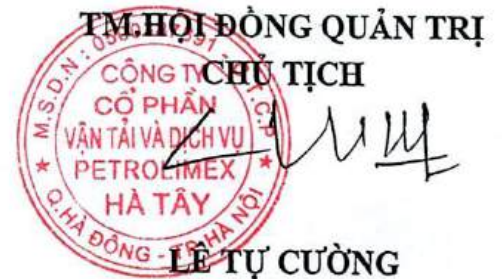 TM.HỘI ĐỒNG QUẢN TRỊ
CHỦ TỊCH
CÔNG TY
CỔ PHẦN
VẬN TẢI VÀ DỊCH VỤ
PETROLIMEX
HÀ TÂY
Q.HÀ ĐÔNG - TP.HÀ NỘI
LÊ TỰ CƯỜNG